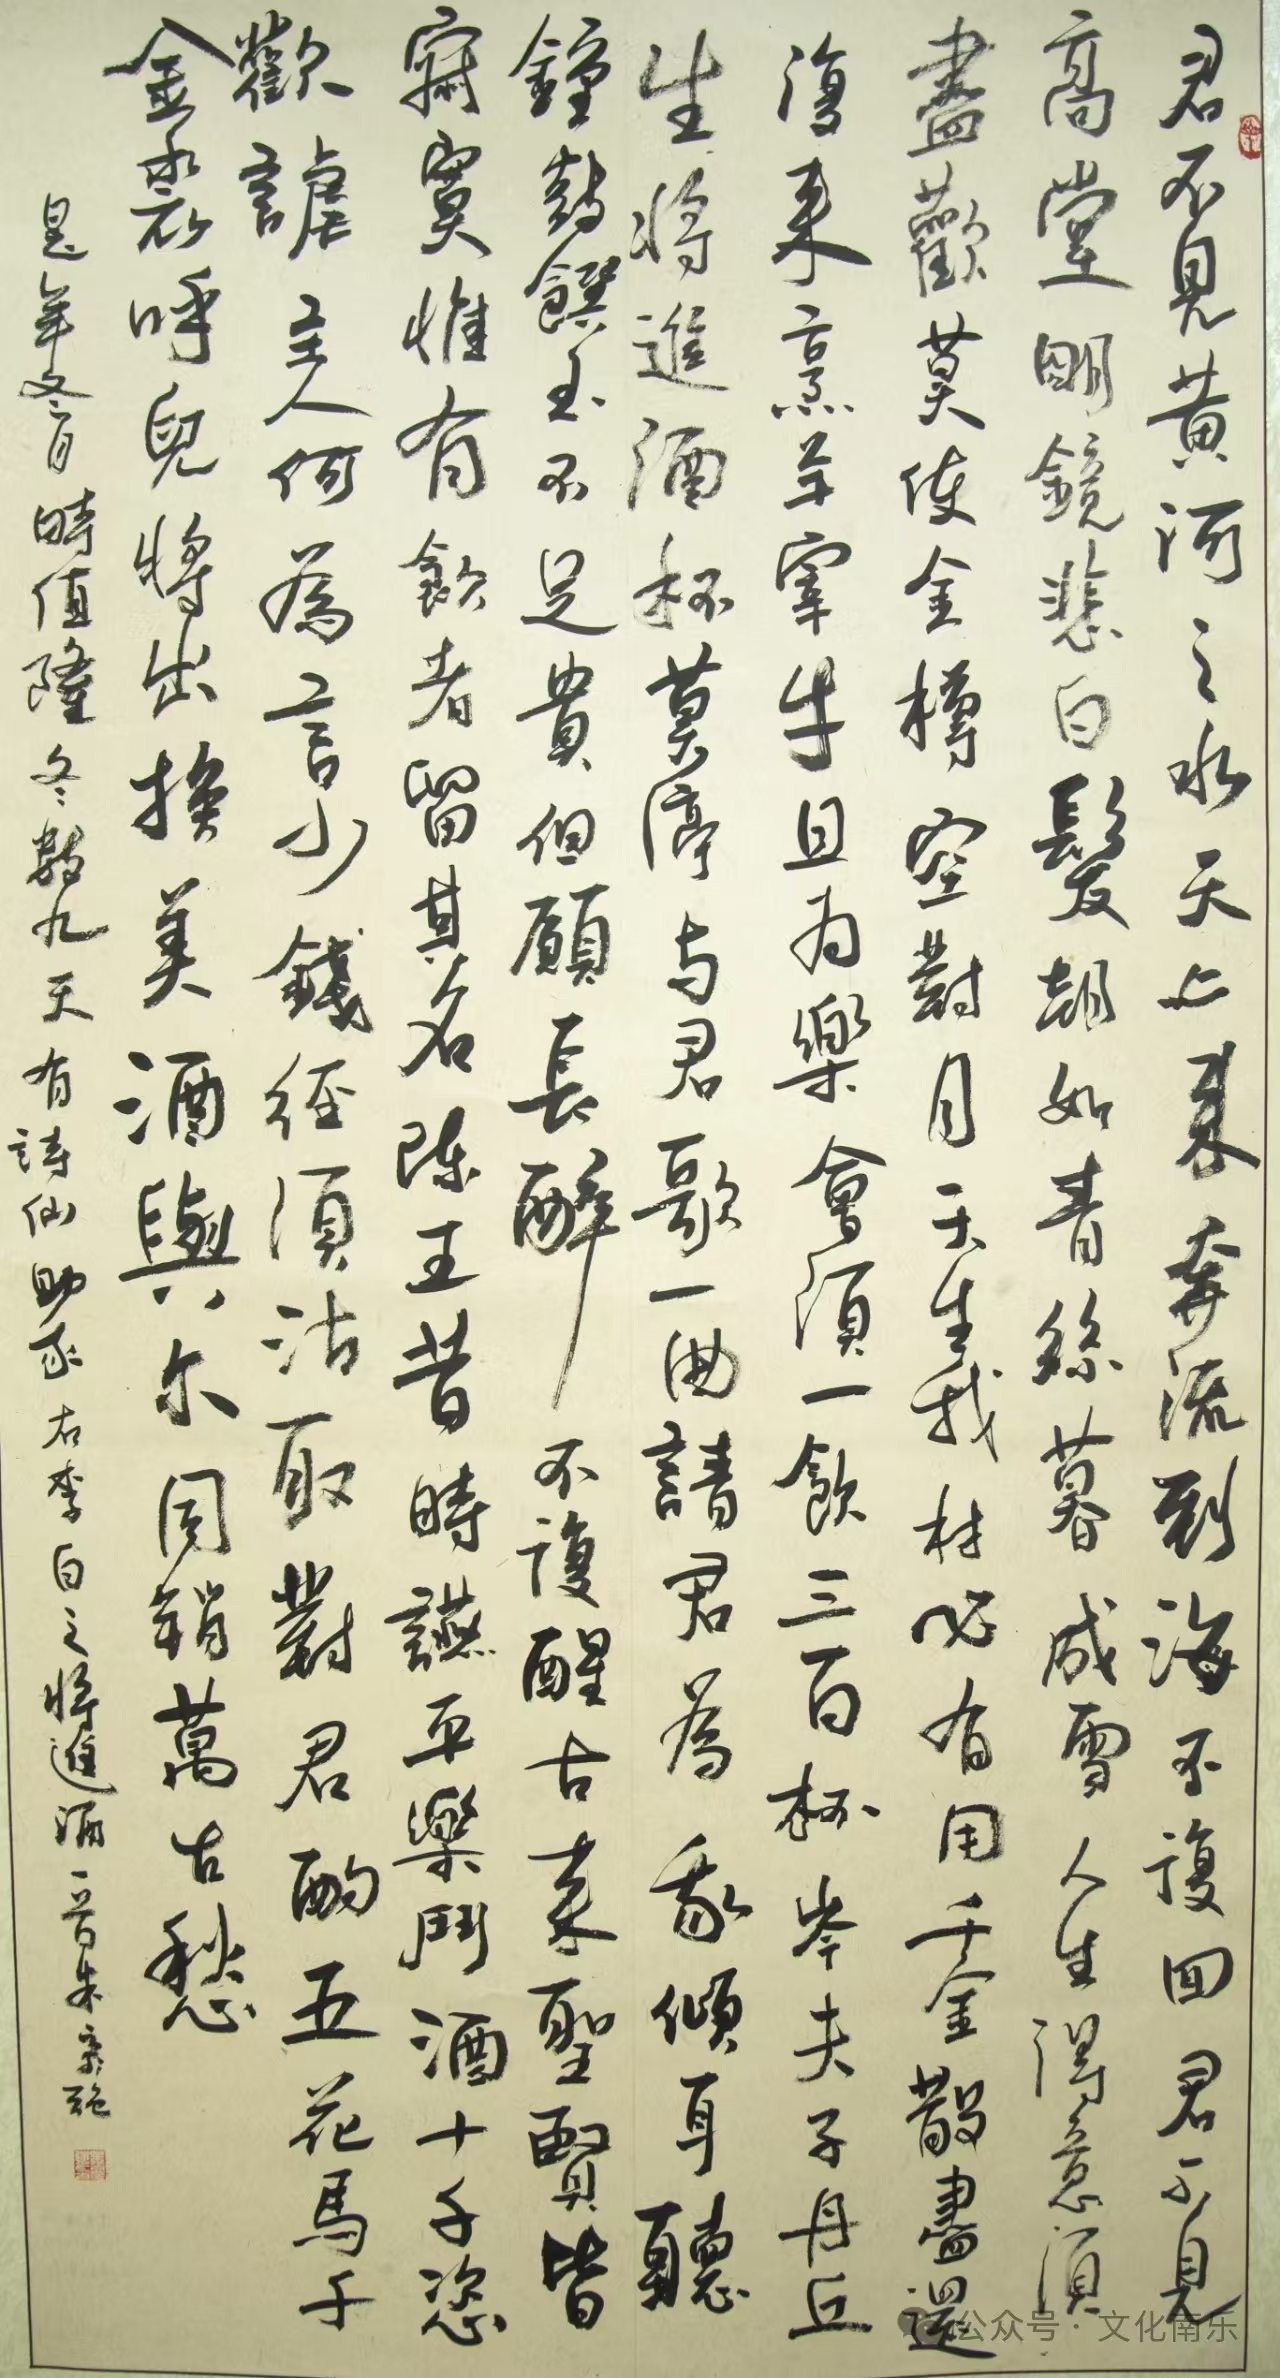 君不見黃河之水天上來奔流到海不復回君不見
高堂明鏡悲白髮朝如青絲暮成雪人生得意須
盡歡莫使金樽空對月天生我材必有用千金散盡還
復来烹羊宰牛且为樂會須一飲三百杯岑夫子丹丘
生將進酒杯莫停与君歌一曲請君為我傾耳聽
鐘鼓饌玉不足貴但願長醉不復醒古来聖賢皆
寂寞惟有飲者留其名陳王昔時讌平樂鬥酒十千恣
歡謔主人何為言少錢徑須沽取對君酌五花馬千
金裘呼兒將出換美酒與尔同銷萬古愁
是年冬月時值隆冬數九天有詩仙助右李白之將進酒一首朱
公众号·文化南乐